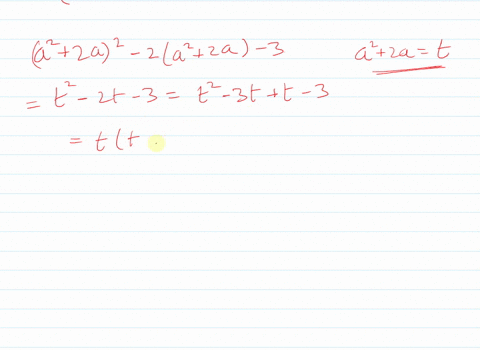 (a²+2a)² - 2(a²+2a) - 3 a²+2a = t
= t² - 2t - 3 = t² - 3t + t - 3
= t(t